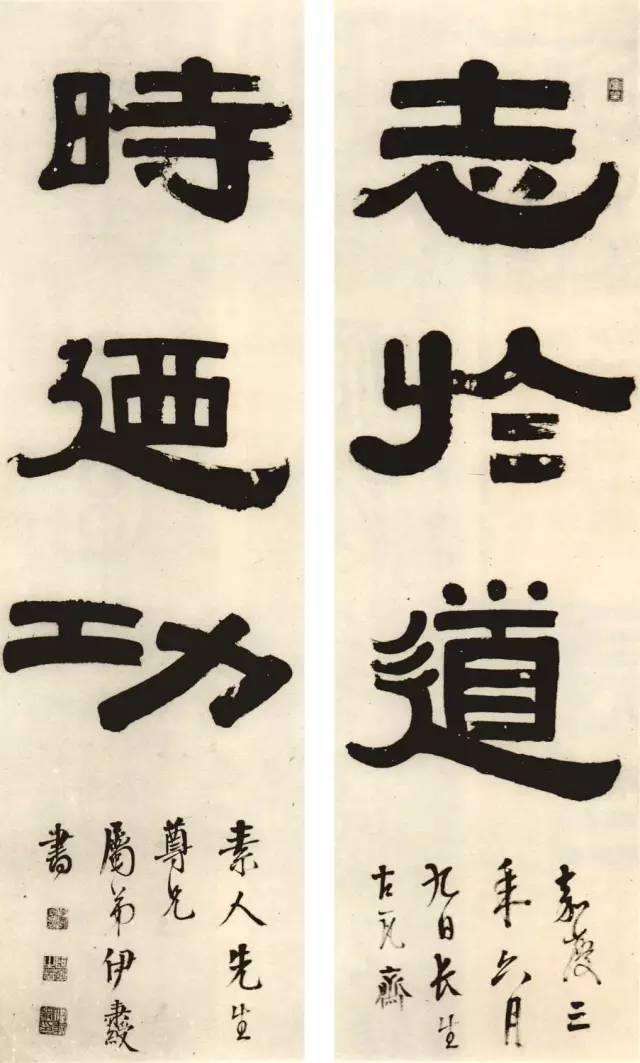 志於道
嘉慶三
年六月
九日長生
古瓦齋
時迺功
素人先生
尊兄
屬弟伊秉綬
書